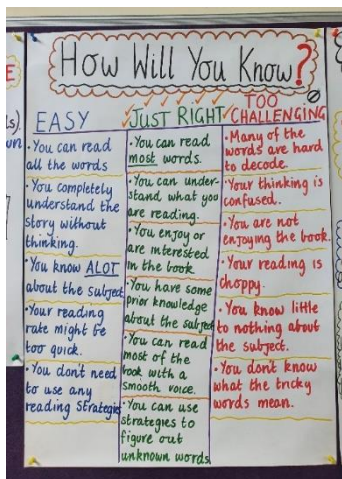 How Will You Know?
EASY
• You can read
all the words
• You completely
understand the
story without
thinking.
• You know ALOT
about the subject
• Your reading
rate might be
too quick.
• You don't need
to use any
reading strategies
JUST RIGHT
• You can read
most words.
• You can under-
stand what you
are reading.
• You enjoy or
are interested
in the book
• You have some
prior knowledge
about the subject
• You can read
most of the
book with a
smooth voice.
• You can use
strategies to
figure out
unknown words.
TOO
CHALLENGING
• Many of the
words are hard
to decode.
• Your thinking is
confused.
• You are not
enjoying the book.
• Your reading is
choppy.
• You know little
to nothing about
the subject.
• You don't know
what the tricky
words mean.